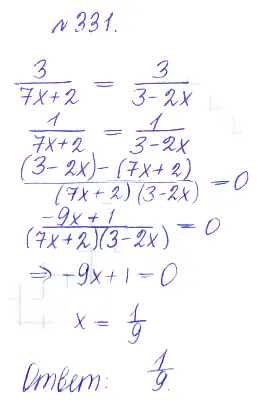 №331.
3/(7x+2) = 3/(3-2x)
1/(7x+2) = 1/(3-2x)
((3-2x)-(7x+2))/((7x+2)(3-2x)) = 0
(-9x+1)/((7x+2)(3-2x)) = 0
⇒ -9x+1=0
x = 1/9
Ответ: 1/9.